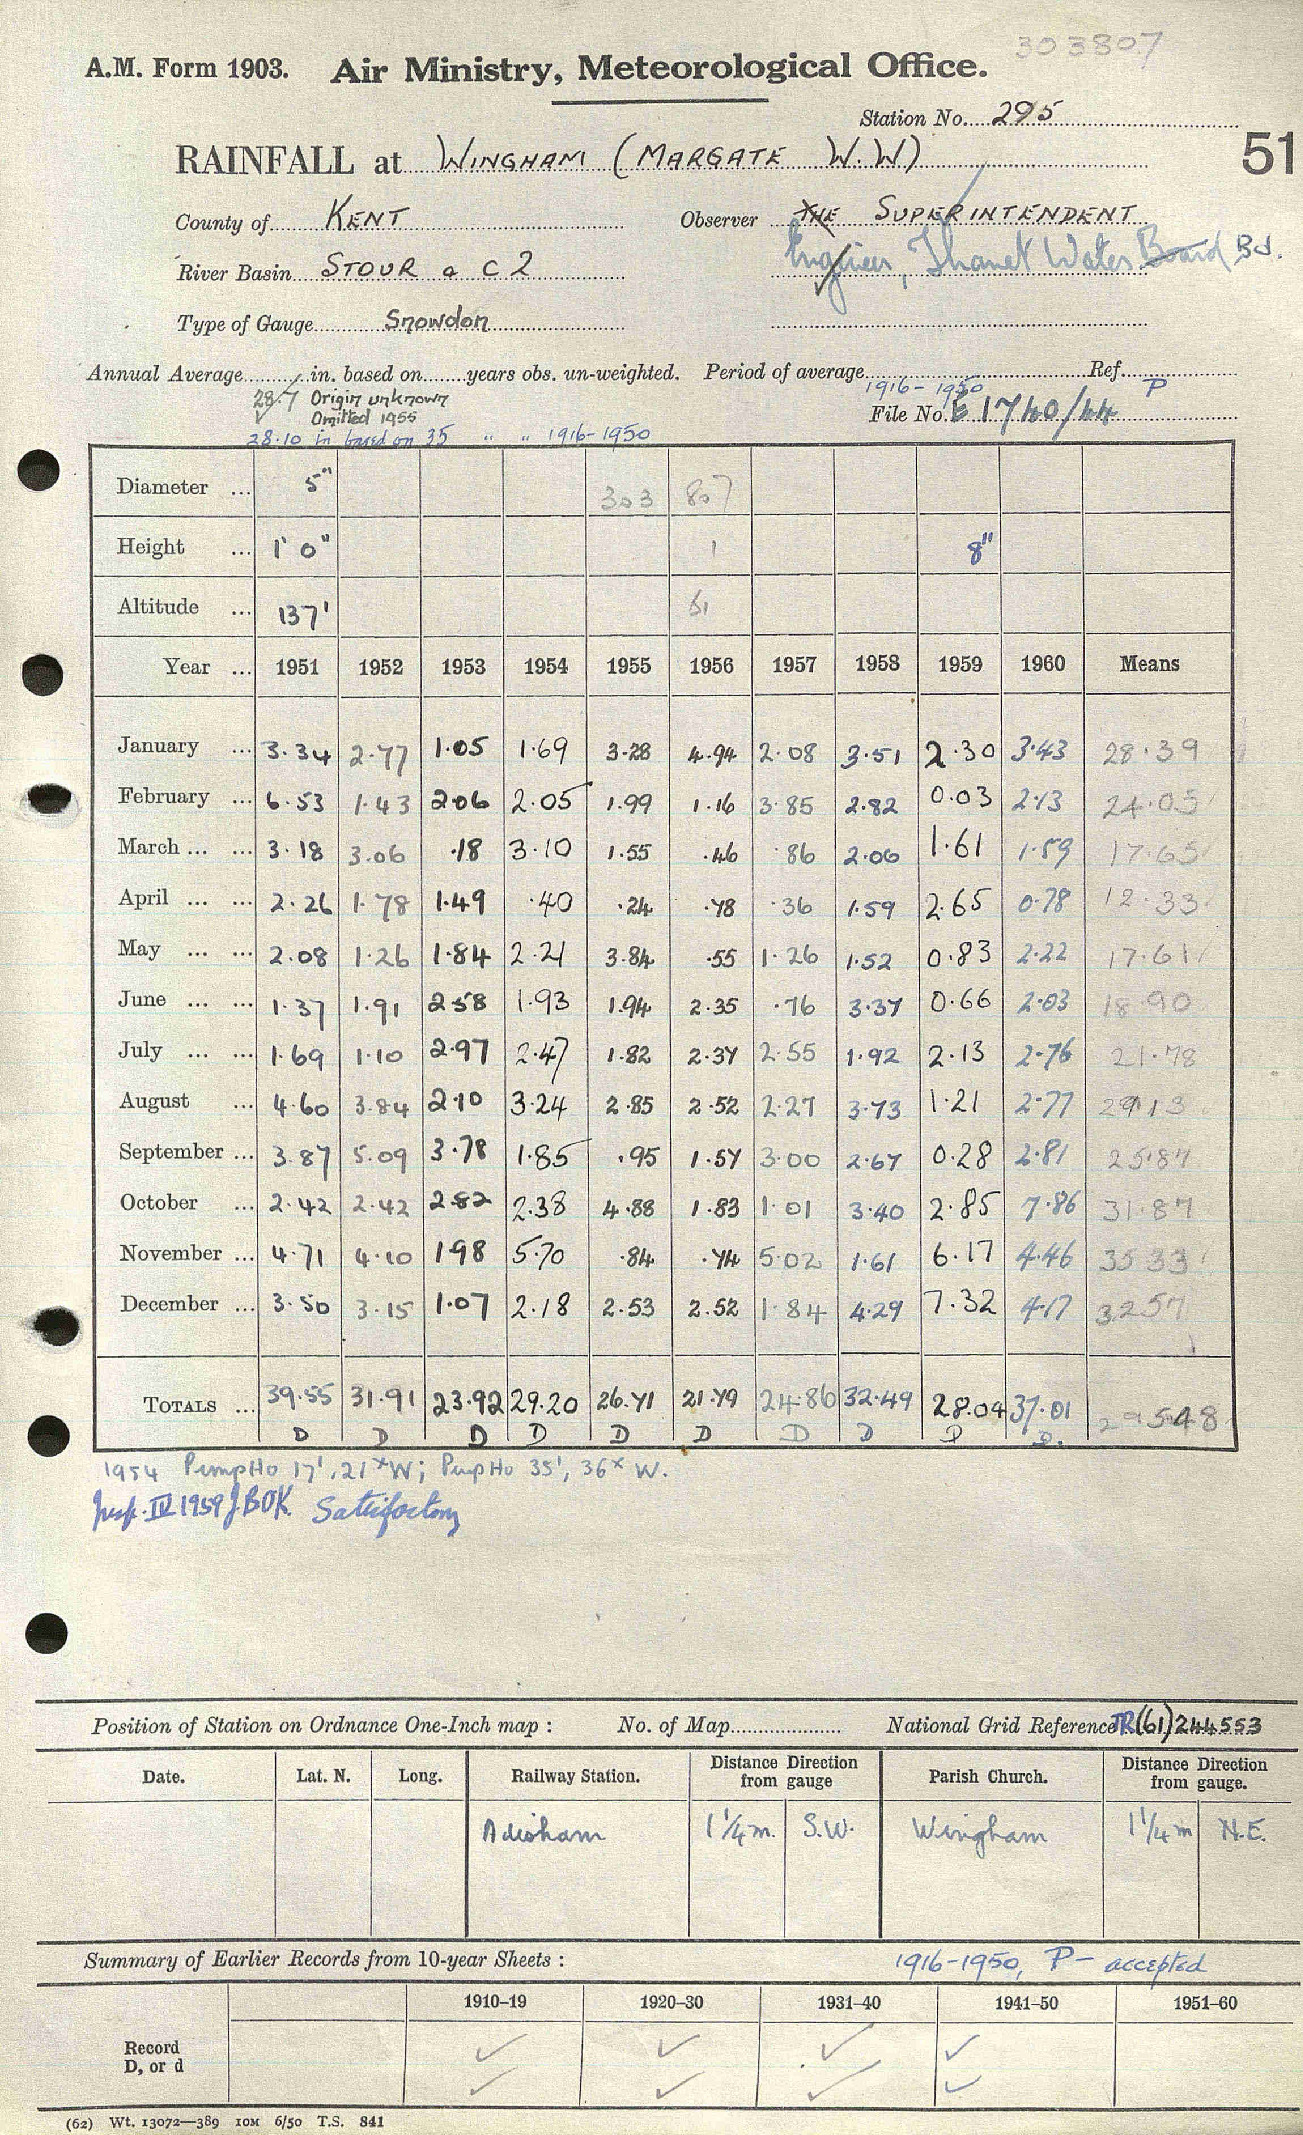 303807
A.M. Form 1903. Air Ministry, Meteorological Office.
Station No. 295
RAINFALL at WINGHAM (MARGATE W.W) 51
County of KENT Observer THE SUPERINTENDENT
Engineer, Thanet Water Board Bd.
River Basin STOUR a C2
Type of Gauge Snowdon
Annual Average in. based on years obs. un-weighted. Period of average 1916-1950 Ref. P
28.7 Origin unknown
Omitted 1955
File No. E 1740/44
28.10 in based on 35 " " 1916-1950
Diameter ... 5" 303 807
Height ... 1' 0" 1 8"
Altitude ... 137' 51
Year ... 1951 1952 1953 1954 1955 1956 1957 1958 1959 1960 Means
January ... 3.34 2.77 1.05 1.69 3.28 4.94 2.08 3.51 2.30 3.43 28.39
February ... 6.53 1.43 2.06 2.05 1.99 1.16 3.85 2.82 0.03 2.13 24.05
March ... ... 3.18 3.06 .18 3.10 1.55 .46 .86 2.06 1.61 1.59 17.65
April ... ... 2.26 1.78 1.49 .40 .24 .78 .36 1.59 2.65 0.78 12.33
May ... ... 2.08 1.26 1.84 2.21 3.84 .55 1.26 1.52 0.83 2.22 17.61
June ... ... 1.37 1.91 2.58 1.93 1.94 2.35 .76 3.37 0.66 2.03 18.90
July ... ... 1.69 1.10 2.97 2.47 1.82 2.37 2.55 1.92 2.13 2.76 21.78
August ... 4.60 3.84 2.10 3.24 2.85 2.52 2.27 3.73 1.21 2.77 29.13
September ... 3.87 5.09 3.78 1.85 .95 1.57 3.00 2.67 0.28 2.81 25.87
October ... 2.42 2.42 2.82 2.38 4.88 1.83 1.01 3.40 2.85 7.86 31.87
November ... 4.71 4.10 1.98 5.70 .84 .74 5.02 1.61 6.17 4.46 35.33
December ... 3.50 3.15 1.07 2.18 2.53 2.52 1.84 4.29 7.32 4.17 32.57
TOTALS ... 39.55 31.91 23.92 29.20 26.71 21.79 24.86 32.49 28.04 37.01 295.48
D D D D D D D D D D.
1954 PumpHo 17', 21ˣW; PmpHo 35', 36ˣ W.
Insp. IV 1959 J.BOK. Satisfactory
Position of Station on Ordnance One-Inch map : No. of Map National Grid Reference TR(61)244553
Date. Lat. N. Long. Railway Station. Distance Direction from gauge Parish Church. Distance Direction from gauge.
Adisham 1¼m. S.W. Wingham 1¼m N.E.
Summary of Earlier Records from 10-year Sheets : 1916-1950, P- accepted
1910-19 1920-30 1931-40 1941-50 1951-60
Record ✓ ✓ ✓ ✓
D, or d ✓ ✓ ✓ ✓
(62) Wt. 13072—389 10M 6/50 T.S. 841